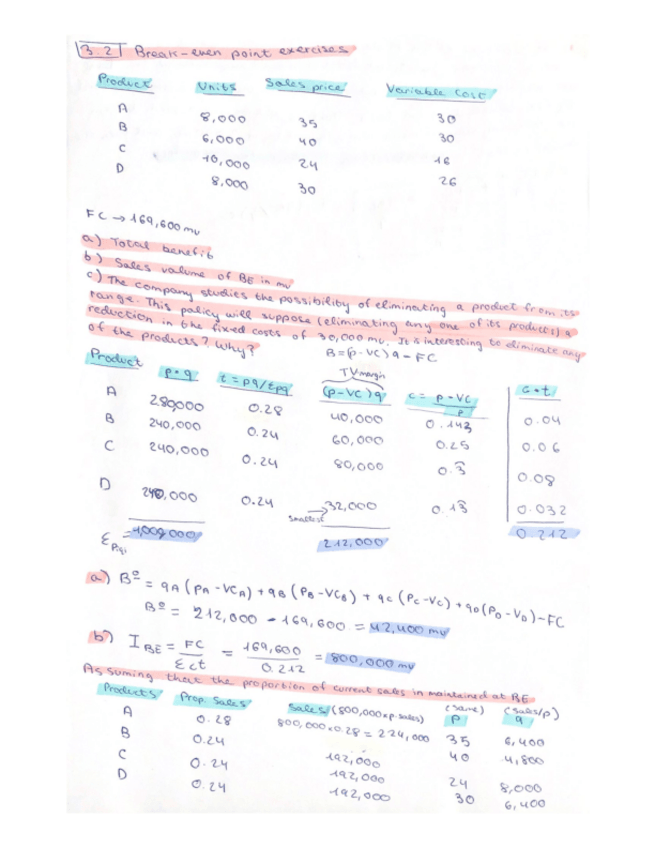 3.2 Break-even point exercises
Product Units Sales price Variable Cost
A 8,000 35 30
B 6,000 40 30
C 10,000 24 16
D 8,000 30 26
FC → 169,600 mu
a) Total benefit
b) Sales value of BE in mu
c) The company studies the possibility of eliminating a product from its
range. This policy will suppose (eliminating any one of its products) a
reduction in the fixed costs of 30,000 mu. It is interesting to eliminate any
of the products? Why?
B = (p - VC) q - FC
TV margin
Product p · q t = pq/Σpq (p - VC) q c = p - VC / p c · t
A 280,000 0.28 40,000 0.143 0.04
B 240,000 0.24 60,000 0.25 0.06
C 240,000 0.24 80,000 0.3̂ 0.08
D 240,000 0.24 smallest → 32,000 0.13̂ 0.032
Σpiqi = 1,000,000 212,000 0.212
a) Bº = qA (PA - VCA) + qB (PB - VCB) + qC (PC - VC) + qD (PD - VD) - FC
Bº = 212,000 - 169,600 = 42,400 mu
b) I BE = FC / Σct = 169,600 / 0.212 = 800,000 mu
Assuming that the proportion of current sales in maintained at BE
Products Prop. Sales Sales (800,000xp.sales) (same) p (sales/p) q
A 0.28 800,000x0.28 = 224,000 35 6,400
B 0.24 192,000 40 4,800
C 0.24 192,000 24 8,000
D 0.24 192,000 30 6,400